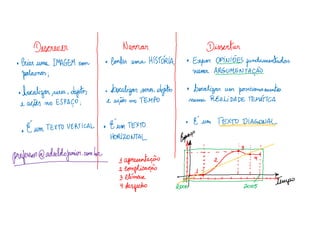 Descrever
• Criar uma IMAGEM com
palavras;
• Localizar seres, objetos
e ações no ESPAÇO;
• É um TEXTO VERTICAL
professor@adaildojunior.com.br
Narrar
• Contar uma HISTÓRIA
• Localizar seres, objetos
e ações no TEMPO
• É um TEXTO
HORIZONTAL
1 apresentação
2 complicação
3 clímax
4 desfecho
Dissertar
• Expor OPINIÕES fundamentadas
numa ARGUMENTAÇÃO
• Localizar um posicionamento
numa REALIDADE TEMÁTICA
• É um TEXTO DIAGONAL
Espaço
1
2
3
4
2005
Tempo